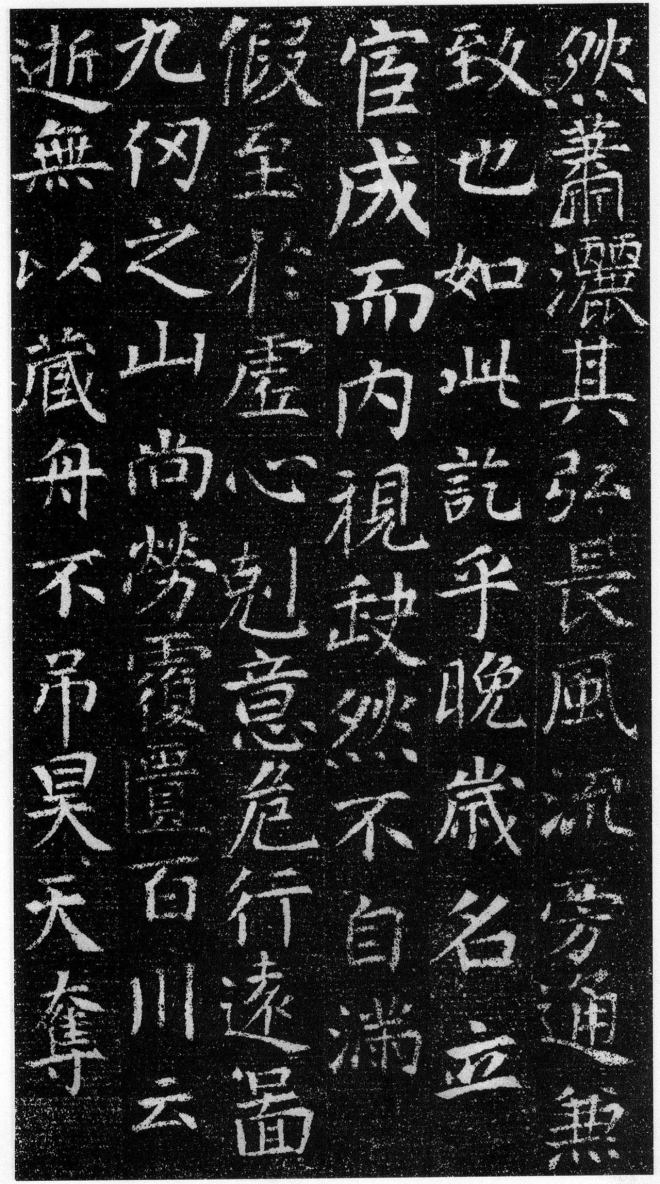 然蕭灑其弘長風流旁通兼
致也如此訖乎晚歲名立
宦成而内視缺然不自滿
假至於虛心剋意危行遠圖
九仞之山尚勞覆匱百川云
逝無以藏舟不吊昊天奪